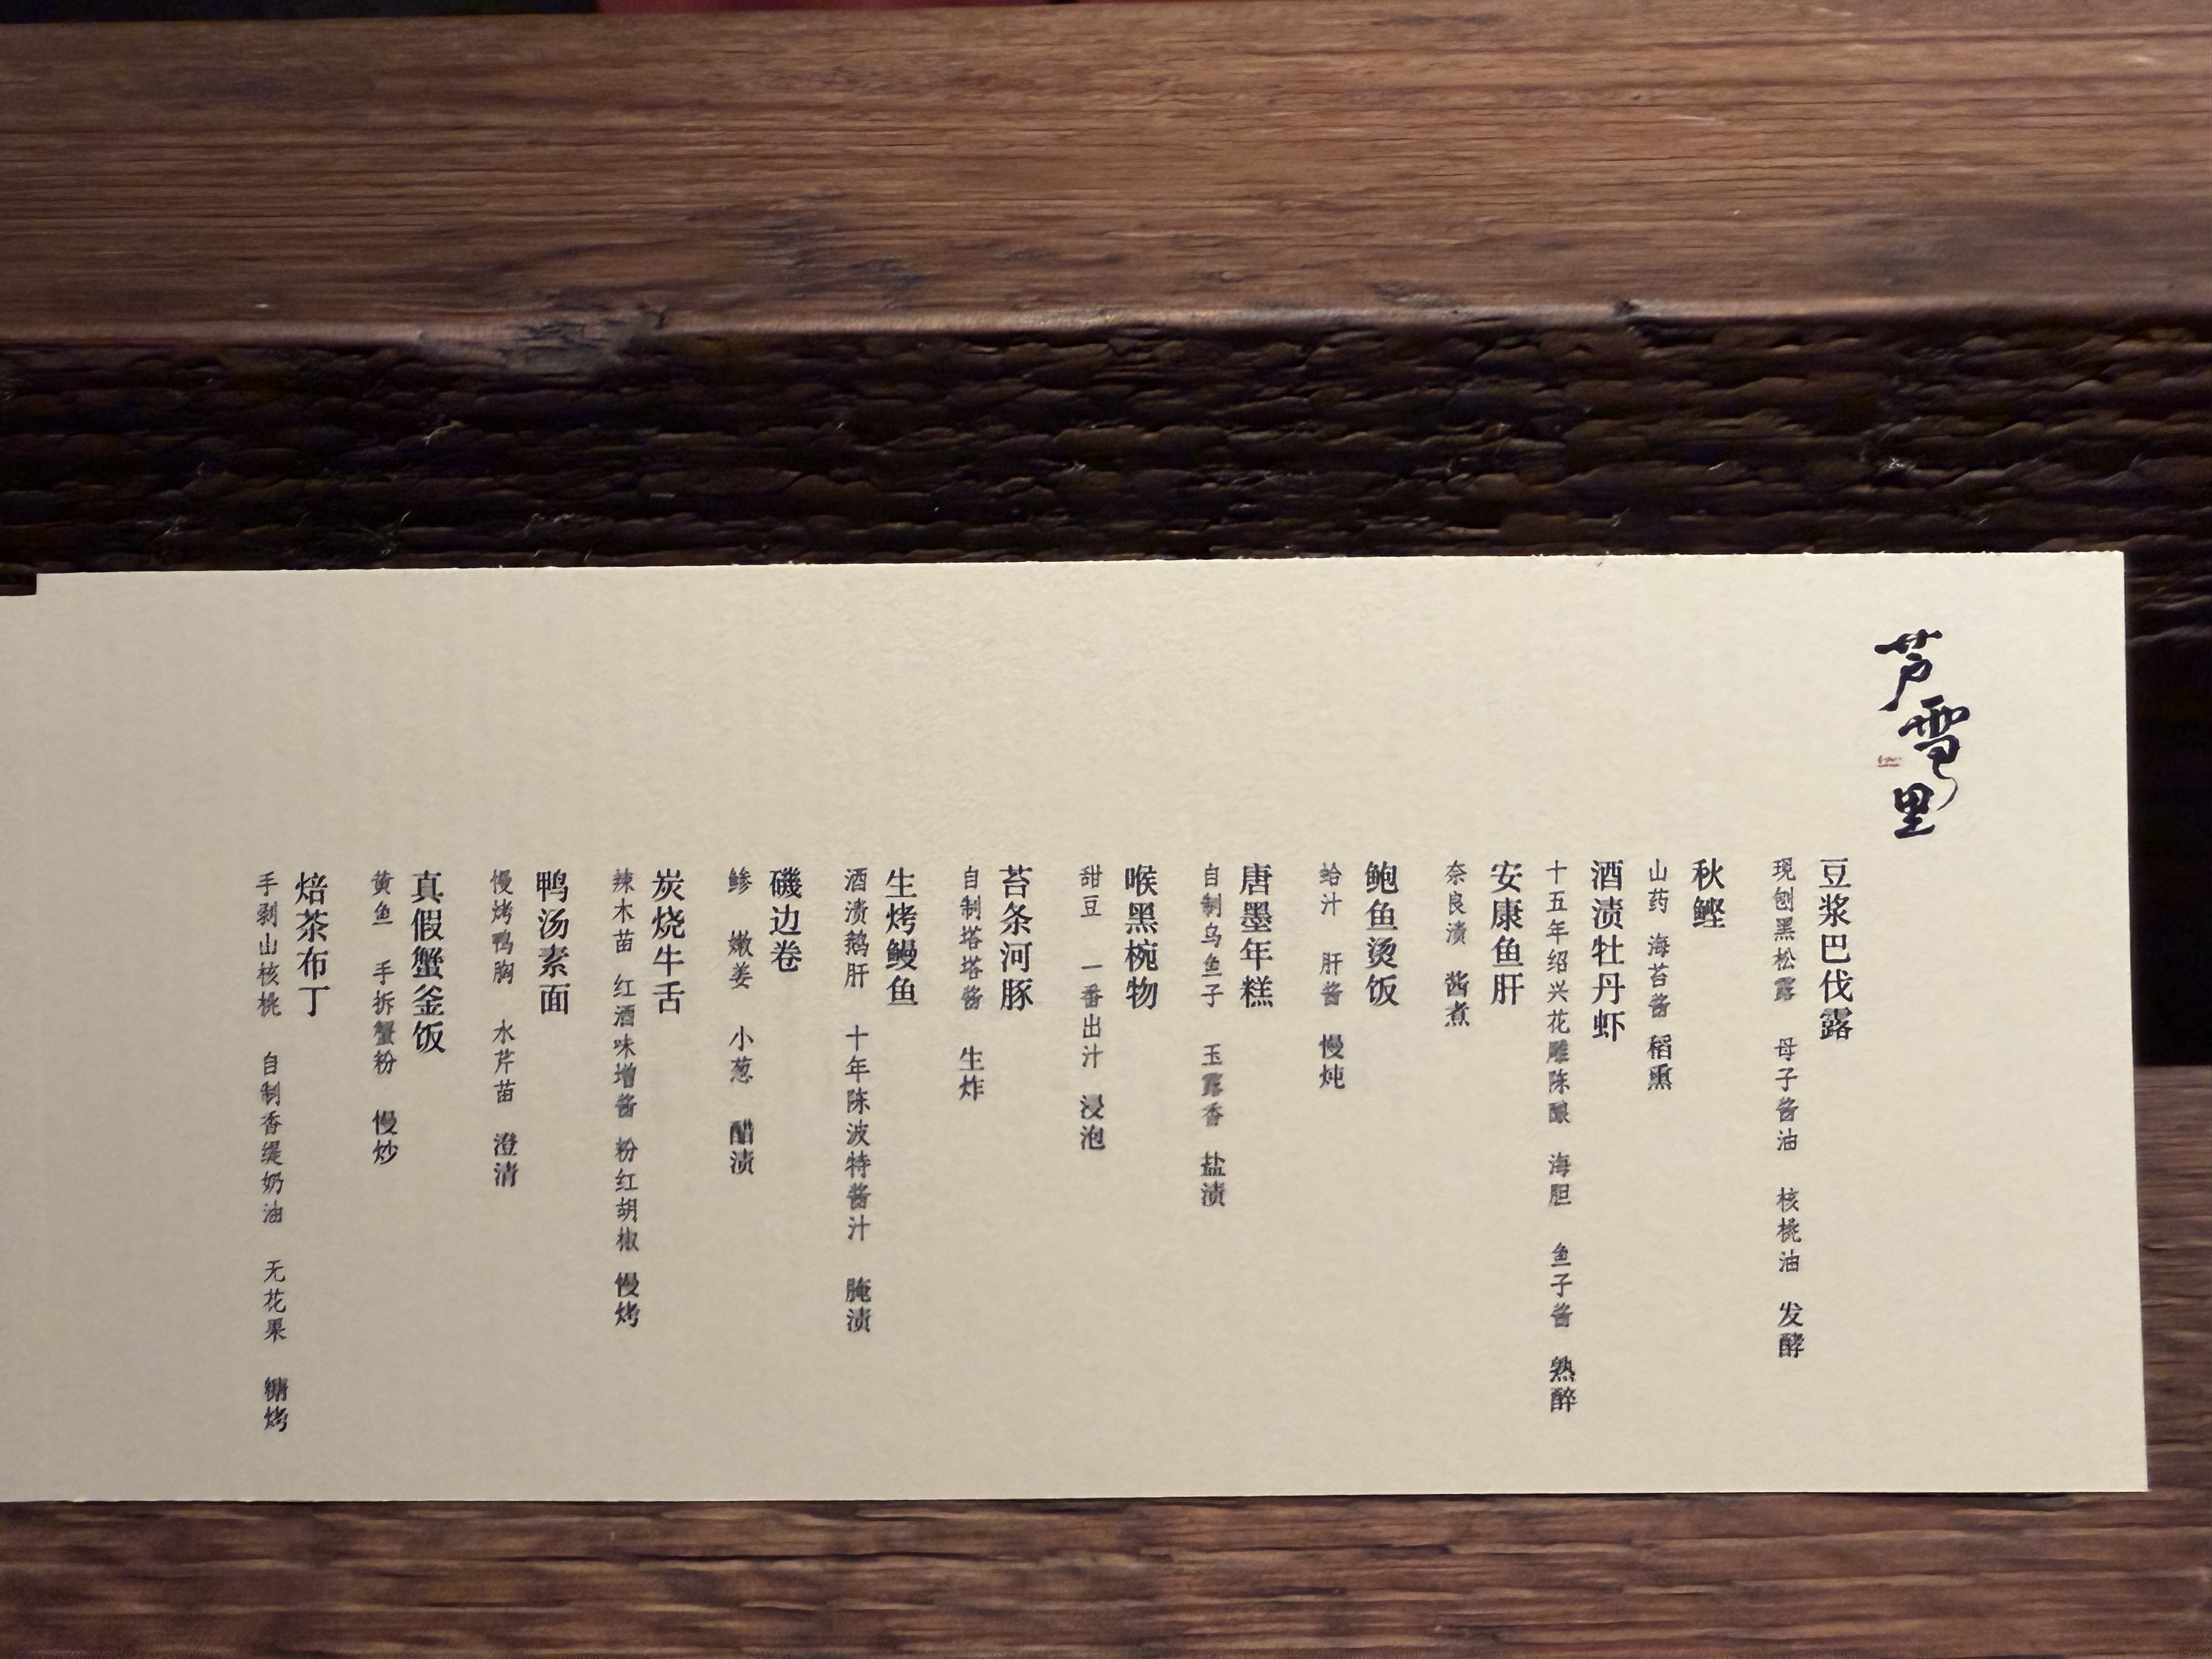 芦雪里
豆浆巴伐露
现刨黑松露 母子酱油 核桃油 发酵
秋鲣
山药 海苔酱 稻熏
酒渍牡丹虾
十五年绍兴花雕陈酿 海胆 鱼子酱 熟醉
安康鱼肝
奈良渍 酱煮
鲍鱼烫饭
蛤汁 肝酱 慢炖
唐墨年糕
自制乌鱼子 玉露香 盐渍
喉黑椀物
甜豆 一番出汁 浸泡
苔条河豚
自制塔塔酱 生炸
生烤鳗鱼
酒渍鹅肝 十年陈波特酱汁 腌渍
磯边卷
鲹 嫩姜 小葱 醋渍
炭烧牛舌
辣木苗 红酒味增酱 粉红胡椒 慢烤
鸭汤素面
慢烤鸭胸 水芹苗 澄清
真假蟹釜饭
黄鱼 手拆蟹粉 慢炒
焙茶布丁
手剥山核桃 自制香缇奶油 无花果 糖烤